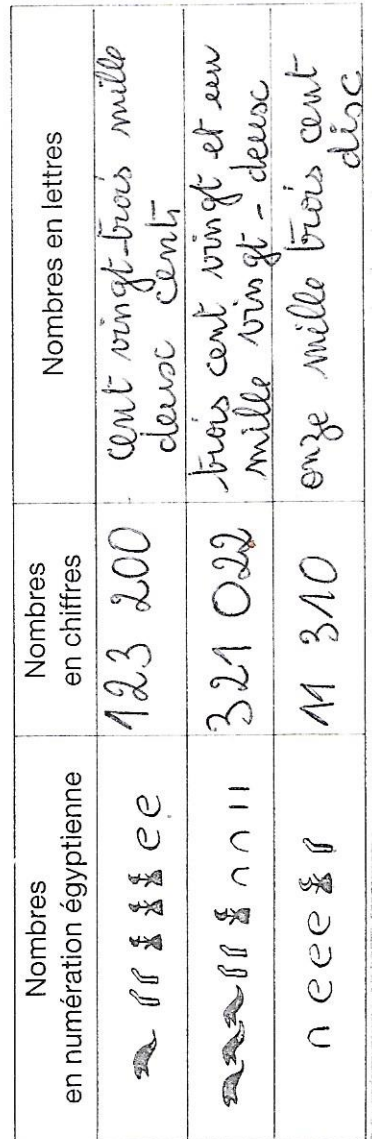 Nombres
en numération égyptienne
Nombres
en chiffres
Nombres en lettres
123 200
cent vingt-trois mille
deux cent
321 022
trois cent vingt et un
mille vingt-deux
11 310
onze mille trois cent
dix